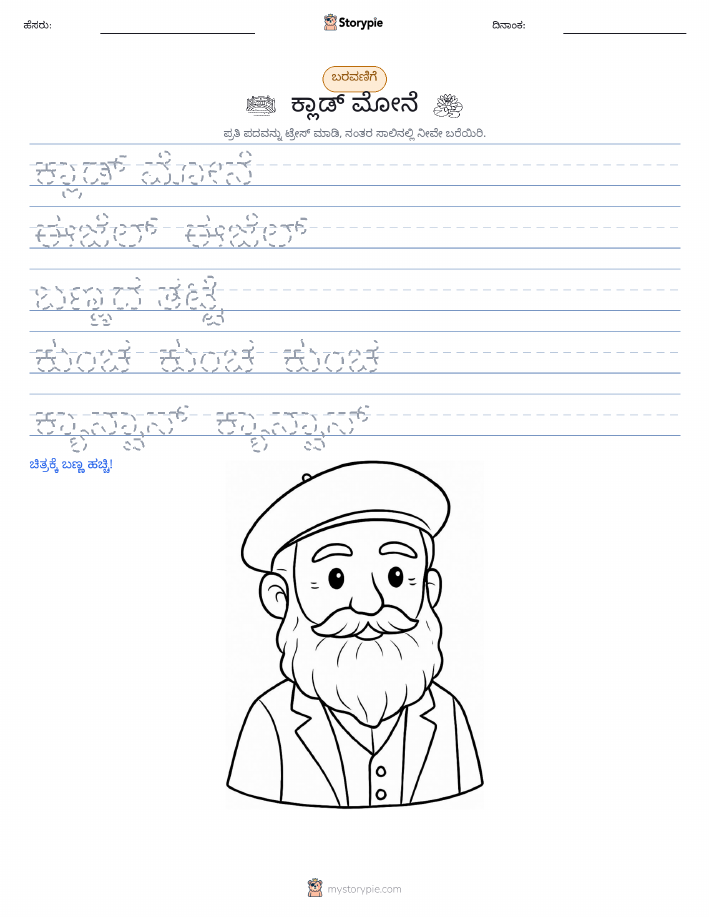 ಹೆಸರು:
Storypie
ದಿನಾಂಕ:
ಬರವಣಿಗೆ
ಕ್ಲಾಡ್ ಮೋನೆ
ಪ್ರತಿ ಪದವನ್ನು ಟ್ರೇಸ್ ಮಾಡಿ, ನಂತರ ಸಾಲಿನಲ್ಲಿ ನೀವೇ ಬರೆಯಿರಿ.
ಕ್ಲಾಡ್ ಮೋನೆ
ಈಜೆಲ್ ಈಜೆಲ್
ಬಣ್ಣದ ತಟ್ಟೆ
ಕುಂಚ ಕುಂಚ ಕುಂಚ
ಕ್ಯಾನ್ವಾಸ್ ಕ್ಯಾನ್ವಾಸ್
ಚಿತ್ರಕ್ಕೆ ಬಣ್ಣ ಹಚ್ಚಿ!
mystorypie.com